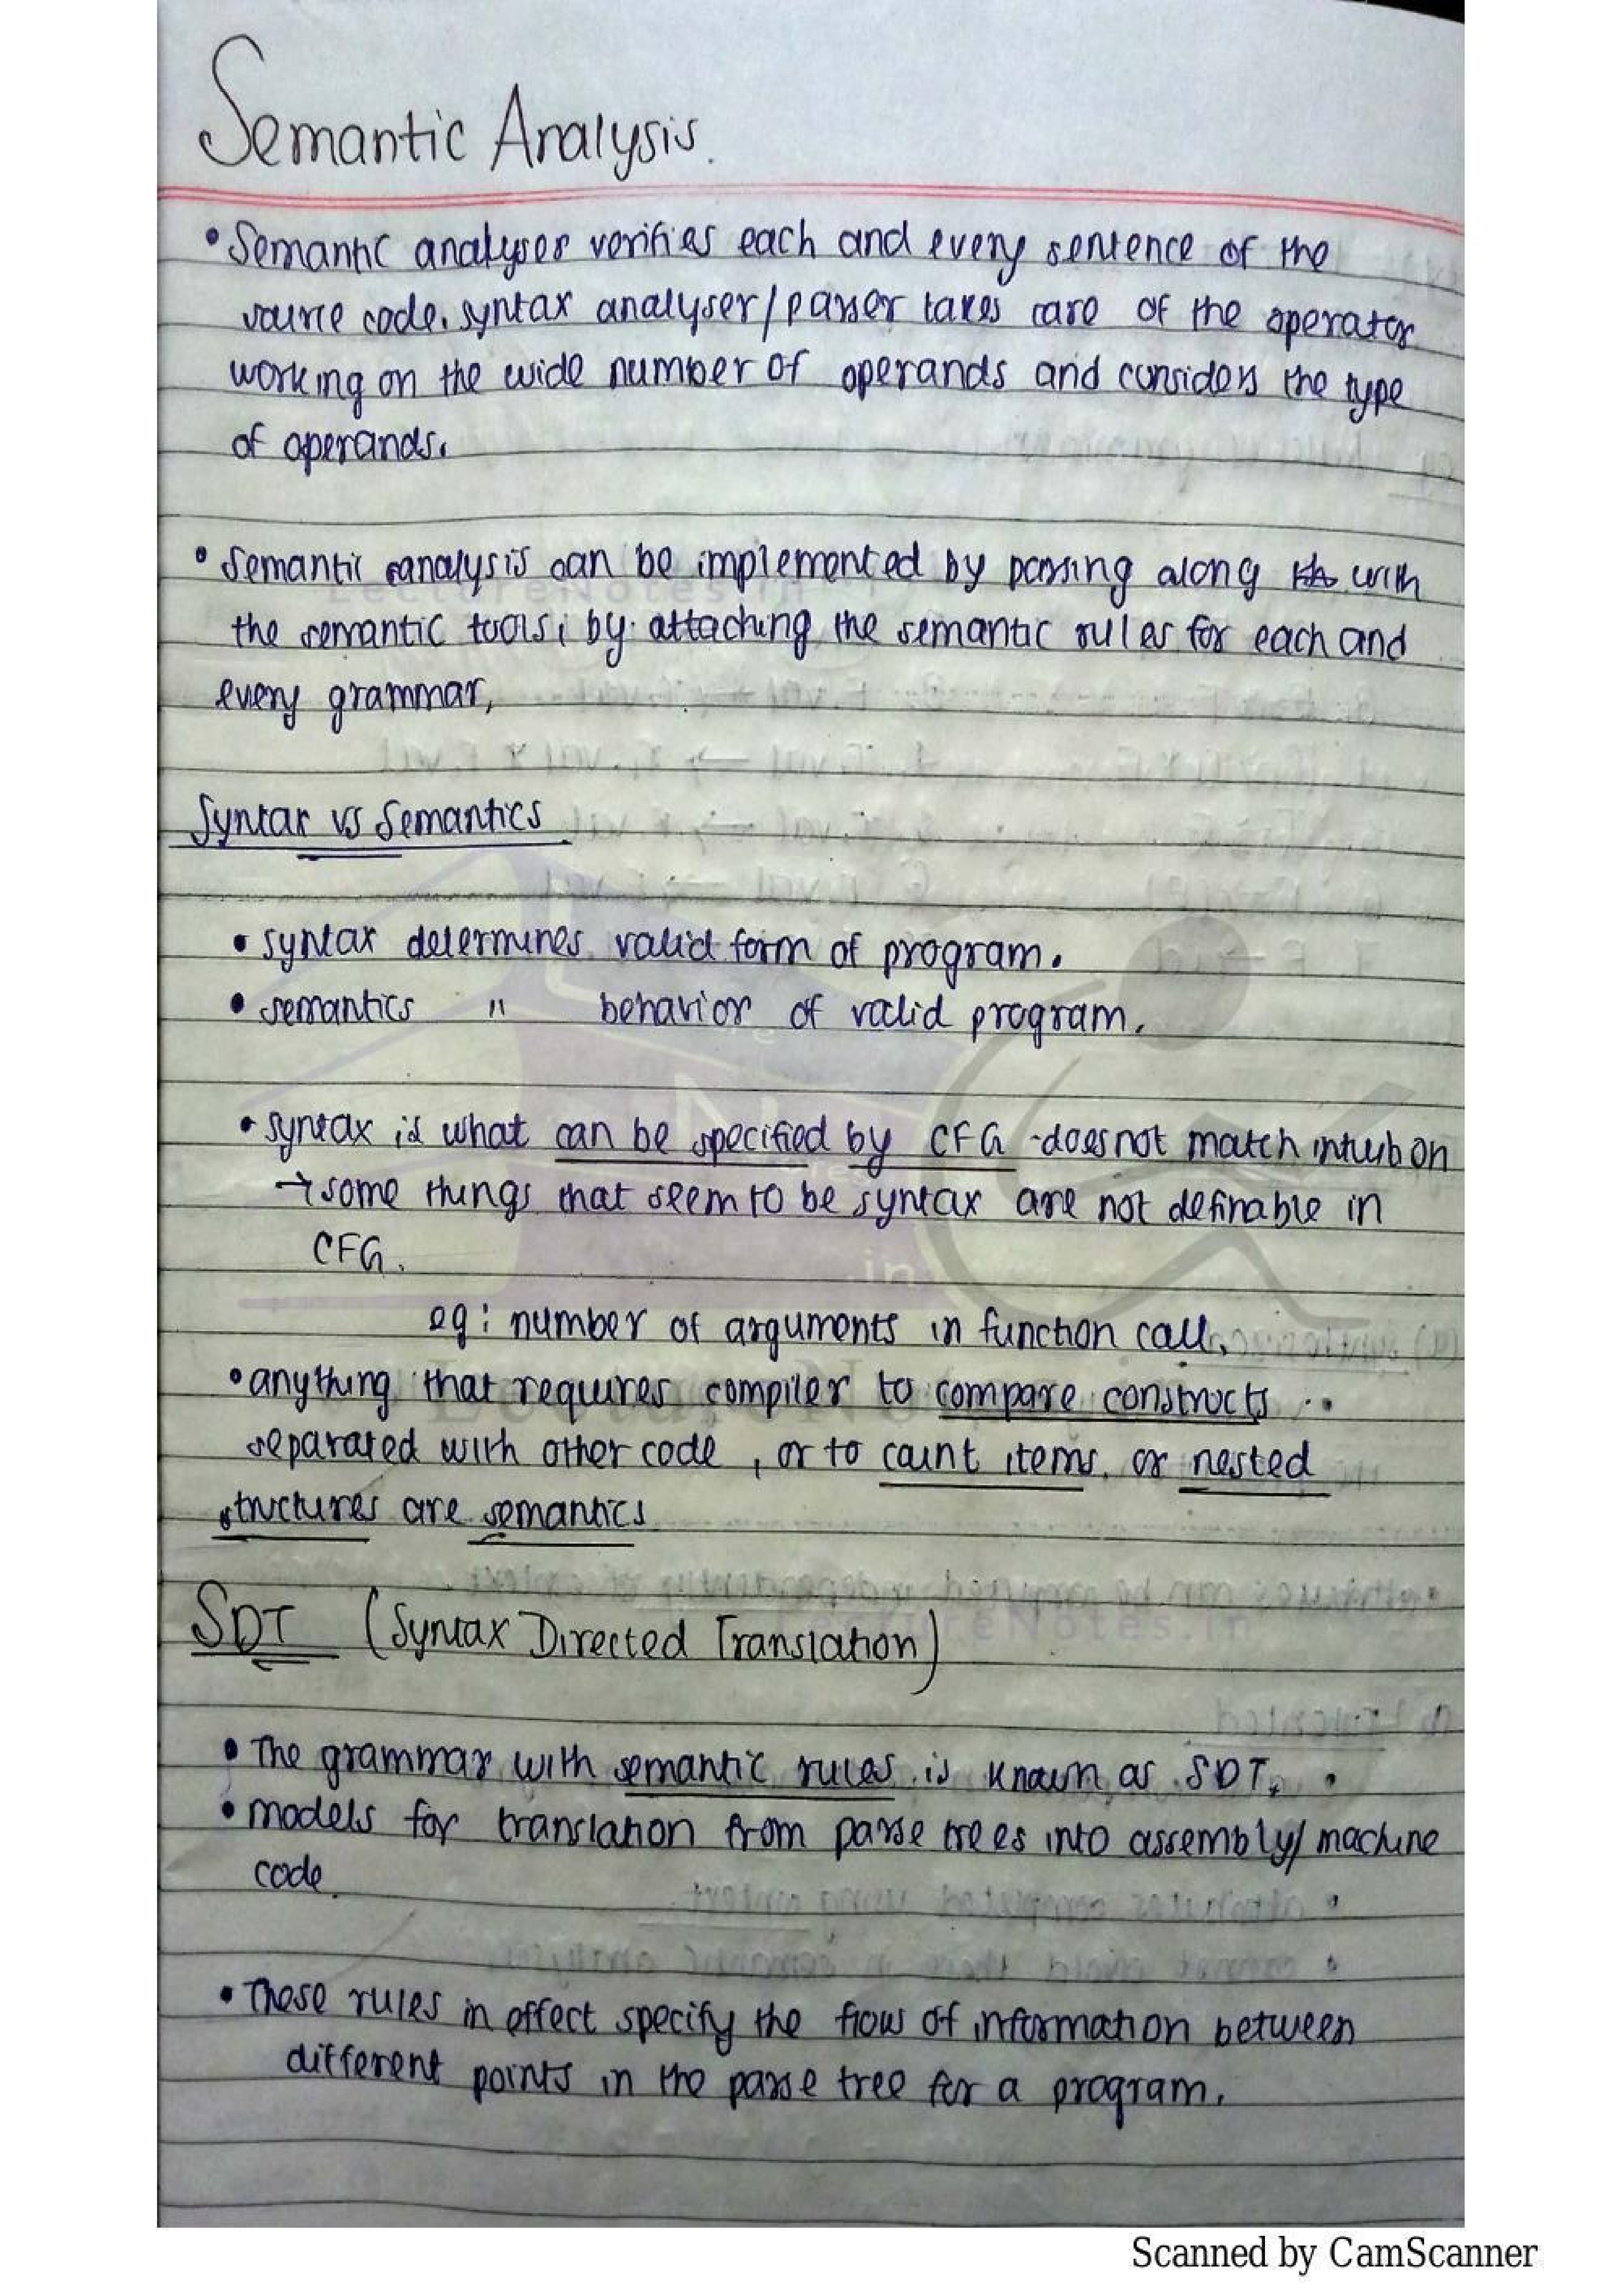 Semantic Analysis.
• Semantic analyser verifies each and every sentence of the
source code. syntax analyser/parser takes care of the operator
working on the wide number of operands and considers the type
of operands.
• Semantic analysis can be implemented by parsing along with
the semantic tools; by attaching the semantic rules for each and
every grammar,
Syntax vs Semantics
• syntax determines valid form of program.
• semantics " behavior of valid program.
• syntax is what can be specified by CFG - does not match intuition
→ some things that seem to be syntax are not definable in
CFG.
eg: number of arguments in function call.
• anything that requires compiler to compare constructs
separated with other code, or to count items. or nested
structures are semantics
SDT (Syntax Directed Translation)
• The grammar with semantic rules is known as SDT.
• models for translation from parse trees into assembly/machine
code.
• These rules in effect specify the flow of information between
different points in the parse tree for a program.
LectureNotes.in
Scanned by CamScanner